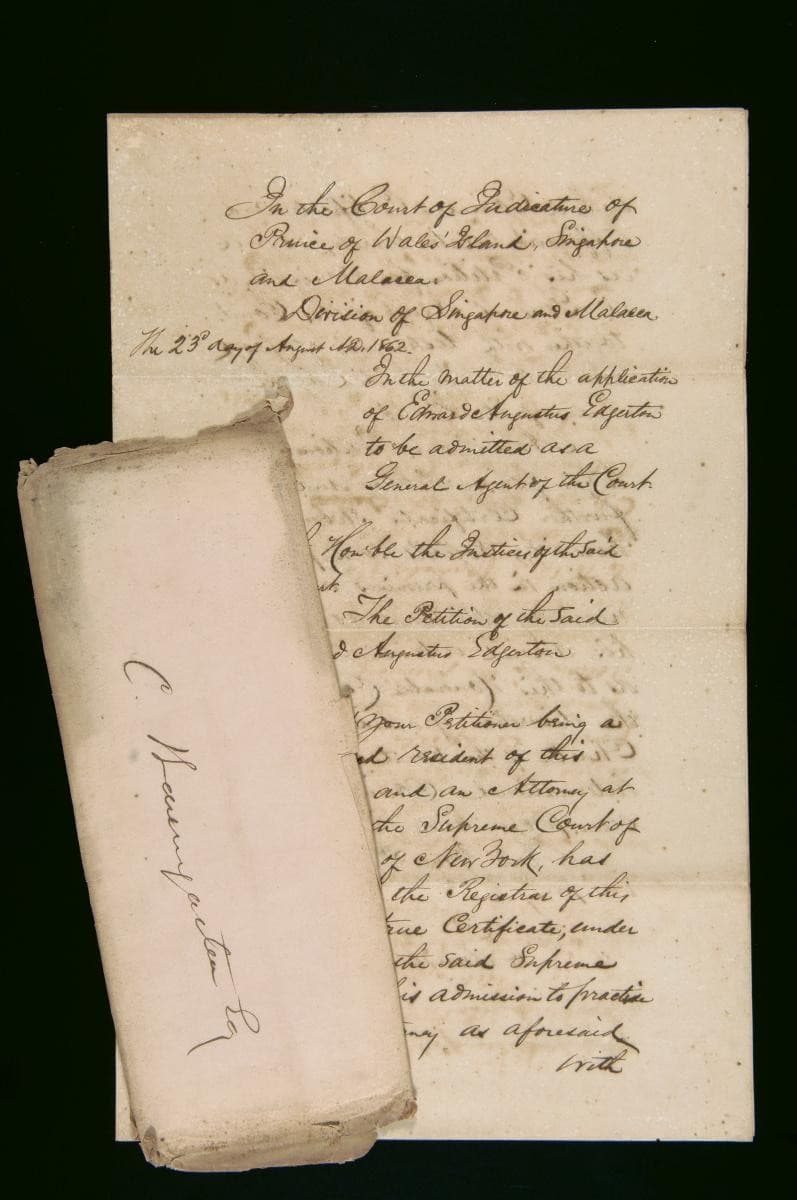 In the Court of Judicature of
Prince of Wales' Island, Singapore
and Malacca.
Division of Singapore and Malacca
The 23d day of August A.D. 1862.
In the matter of the application
of Edward Augustus Edgerton
to be admitted as a
General Agent of the Court.
Hon'ble the Justices of the said
The Petition of the said
d Augustus Edgerton
Your Petitioner being a
resident of this
and an Attorney at
the Supreme Court of
of New York, has
the Registrar of this
true Certificate, under
the said Supreme
his admission to practise
as aforesaid
with
C. Baumgarten Esq